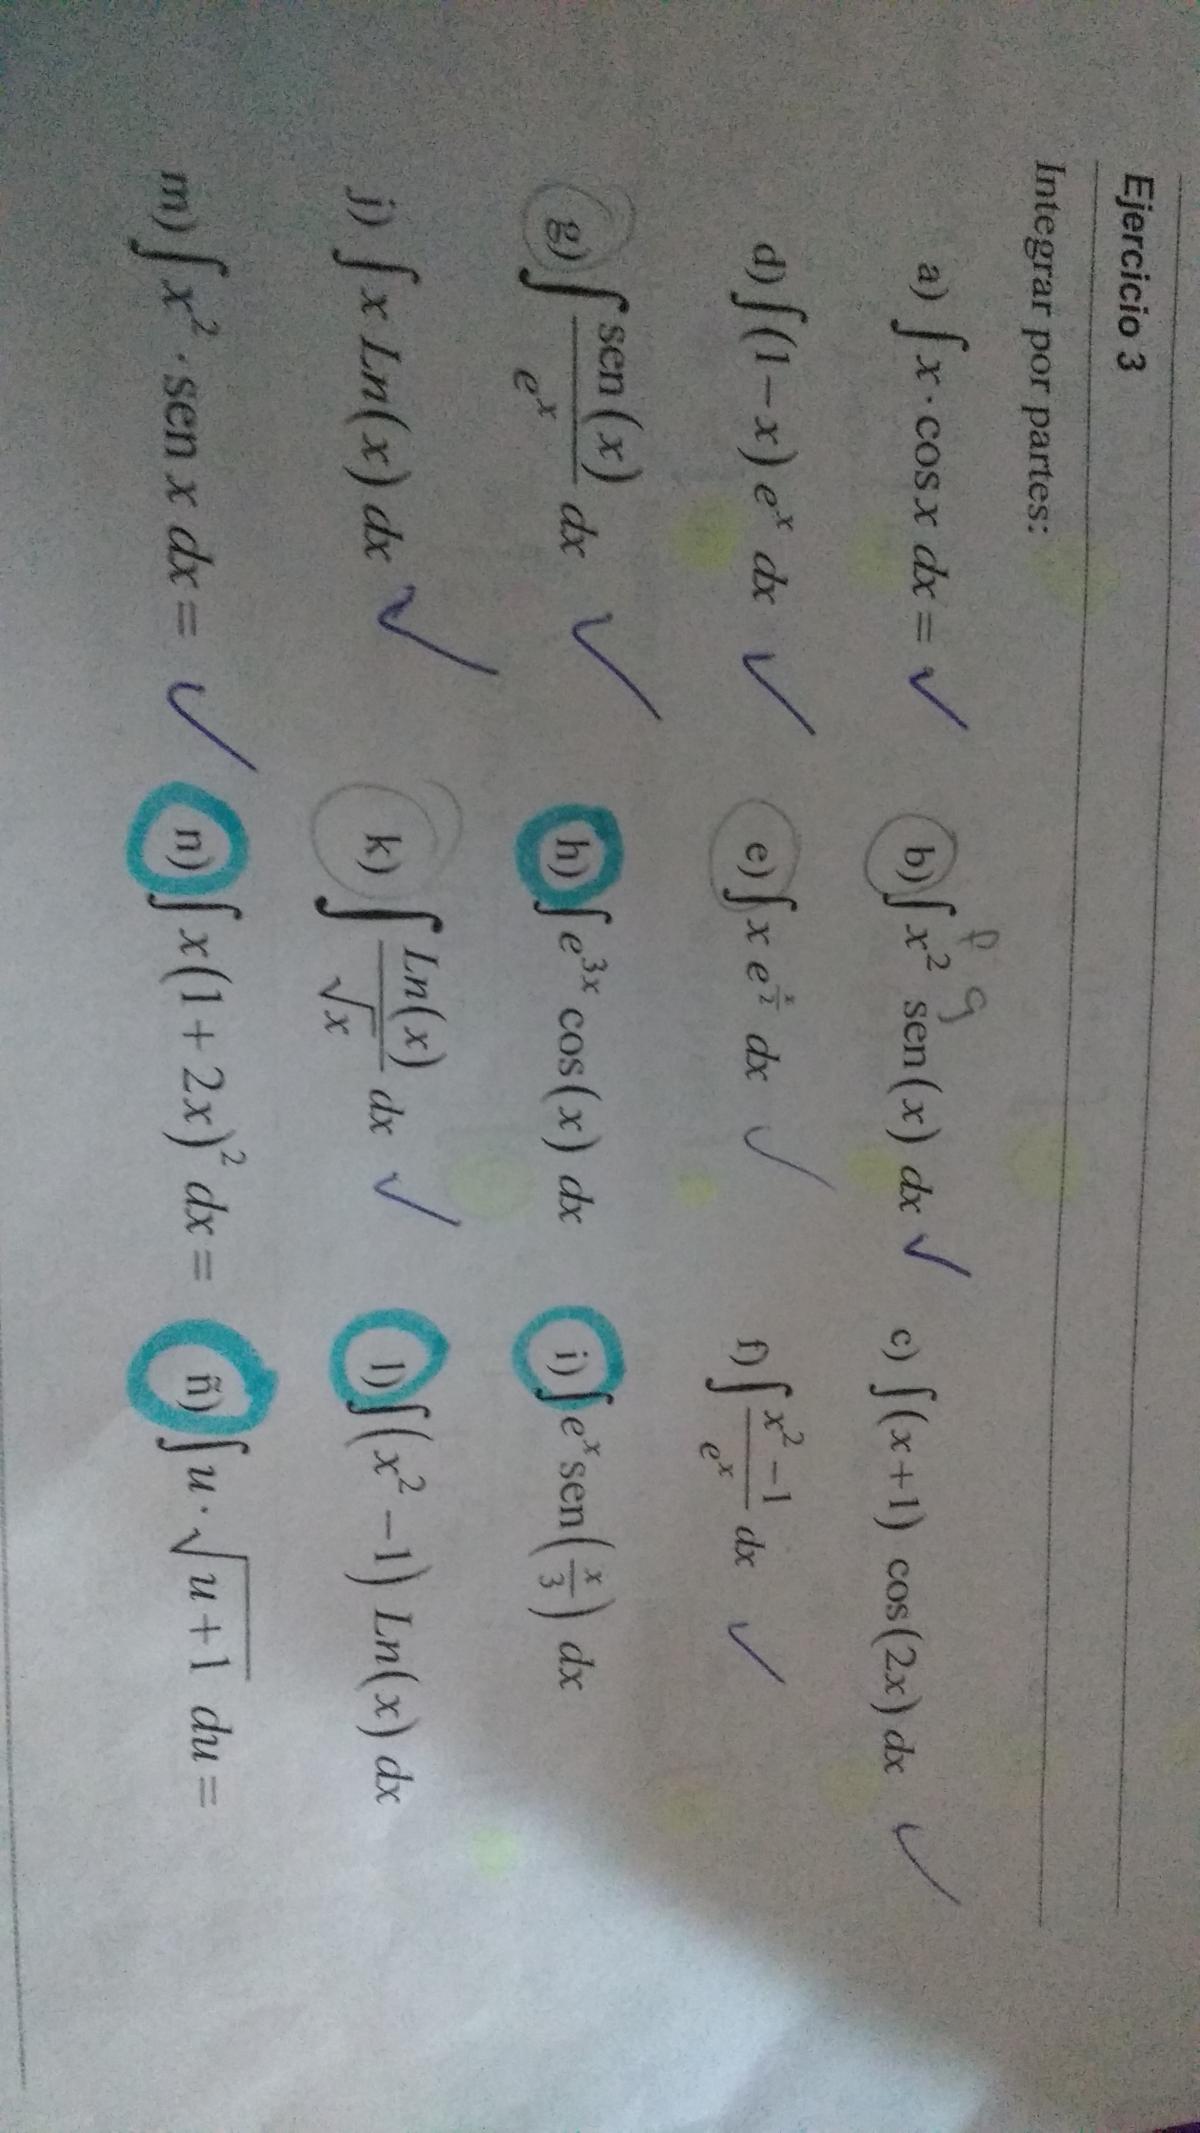 Ejercicio 3
Integrar por partes:
f g
a) ∫ x · cos x dx = ✓ b) ∫ x² sen(x) dx ✓ c) ∫ (x+1) cos(2x) dx ✓
d) ∫ (1−x) eˣ dx ✓ e) ∫ x e^(x/2) dx ✓ f) ∫ (x²−1)/eˣ dx ✓
g) ∫ sen(x)/eˣ dx ✓ h) ∫ e³ˣ cos(x) dx i) ∫ eˣ sen(x/3) dx
j) ∫ x Ln(x) dx ✓ k) ∫ Ln(x)/√x dx ✓ l) ∫ (x² −1) Ln(x) dx
m) ∫ x² · sen x dx = ✓ n) ∫ x(1+2x)² dx = ñ) ∫ u · √(u+1) du =